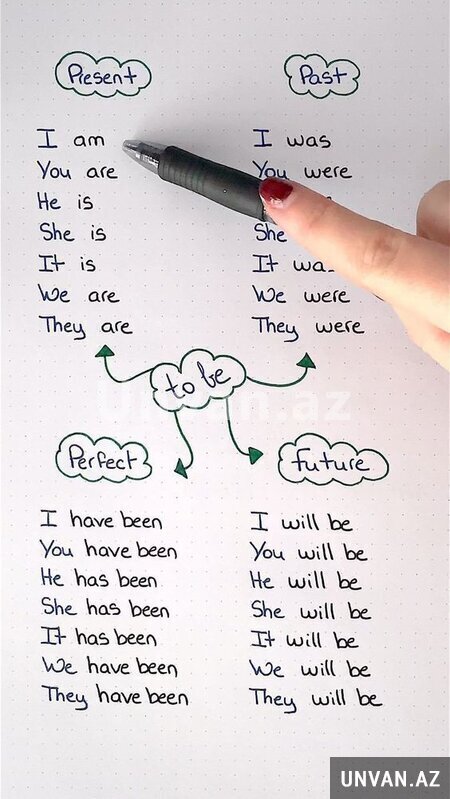 Present
I am
You are
He is
She is
It is
We are
They are
Past
I was
You were
She
It was
We were
They were
to be
unvan.az
Perfect
I have been
You have been
He has been
She has been
It has been
We have been
They have been
future
I will be
You will be
He will be
She will be
It will be
We will be
They will be
UNVAN.AZ